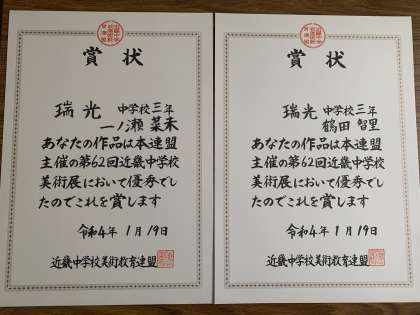 賞状
瑞光 中学校三年
一ノ瀬 菜未
あなたの作品は本連盟
主催の第62回近畿中学校
美術展において優秀でし
たのでこれを賞します
令和4年 1月 19日
近畿中学校美術教育連盟
賞状
瑞光 中学校三年
鶴田 智里
あなたの作品は本連盟
主催の第62回近畿中学校
美術展において優秀でし
たのでこれを賞します
令和4年 1月 19日
近畿中学校美術教育連盟